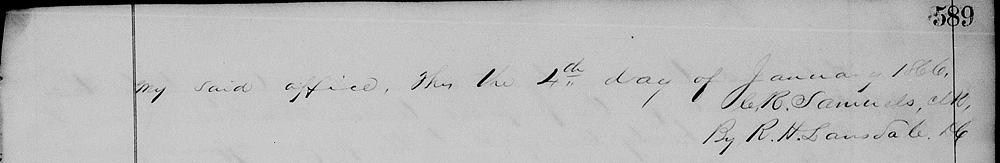 589
my said office, This the 4th day of January 1866.
R. Samuels, Clk,
By R. H. Lansdale. DC